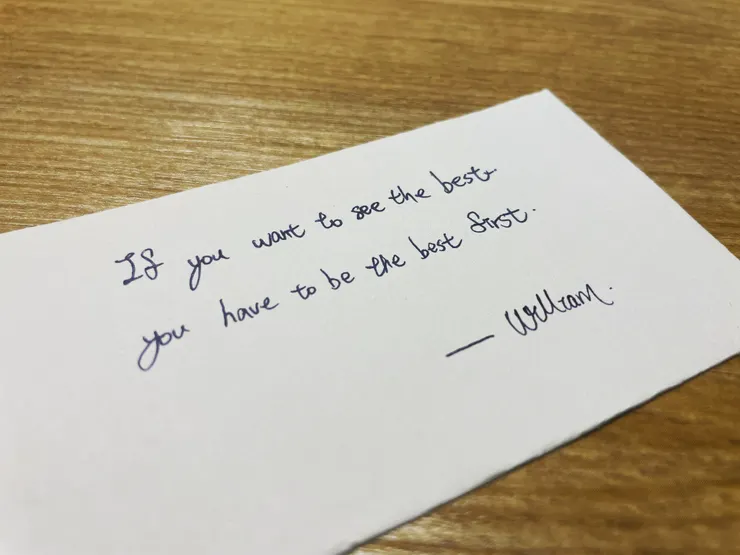 If you want to see the best
you have to be the best first.
— William.